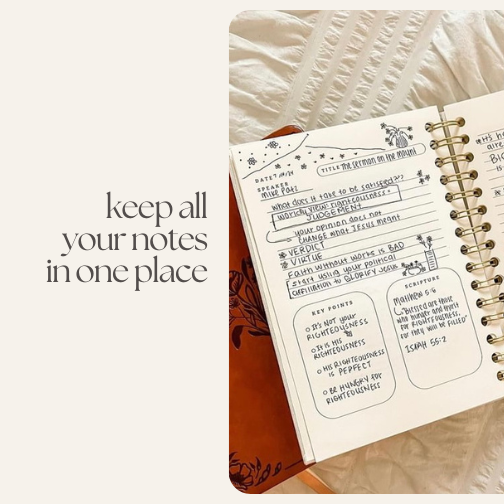 keep all
your notes
in one place
DATE 7/14/24
TITLE The Sermon on the Mount
SPEAKER
Mike Pake
What does it take to be satisfied???
Worldly view: righteousness =
JUDGEMENT
your opinion does not
CHANGE what Jesus meant
VERDICT
VIRTUE
Faith without works is BAD
Start using your political
affiliation to GLORIFY Jesus
KEY POINTS
It's NOT your
RIGHTEOUSNESS
It is His
RIGHTEOUSNESS
HIS RIGHTEOUSNESS
is PERFECT
BE HUNGRY for
RIGHTEOUSNESS
SCRIPTURE
Matthew 5:6
"Blessed are those
who hunger and thirst
for RIGHTEOUSNESS,
for they will be filled"
ISAIAH 55:2